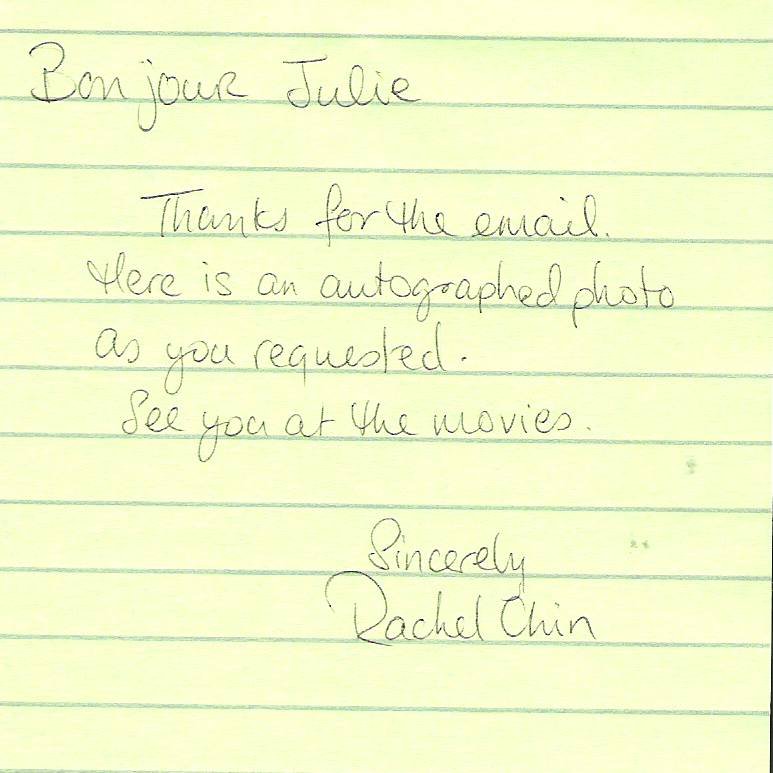 Bonjour Julie
Thanks for the email.
Here is an autographed photo
as you requested.
See you at the movies.
Sincerely
Rachel Chin